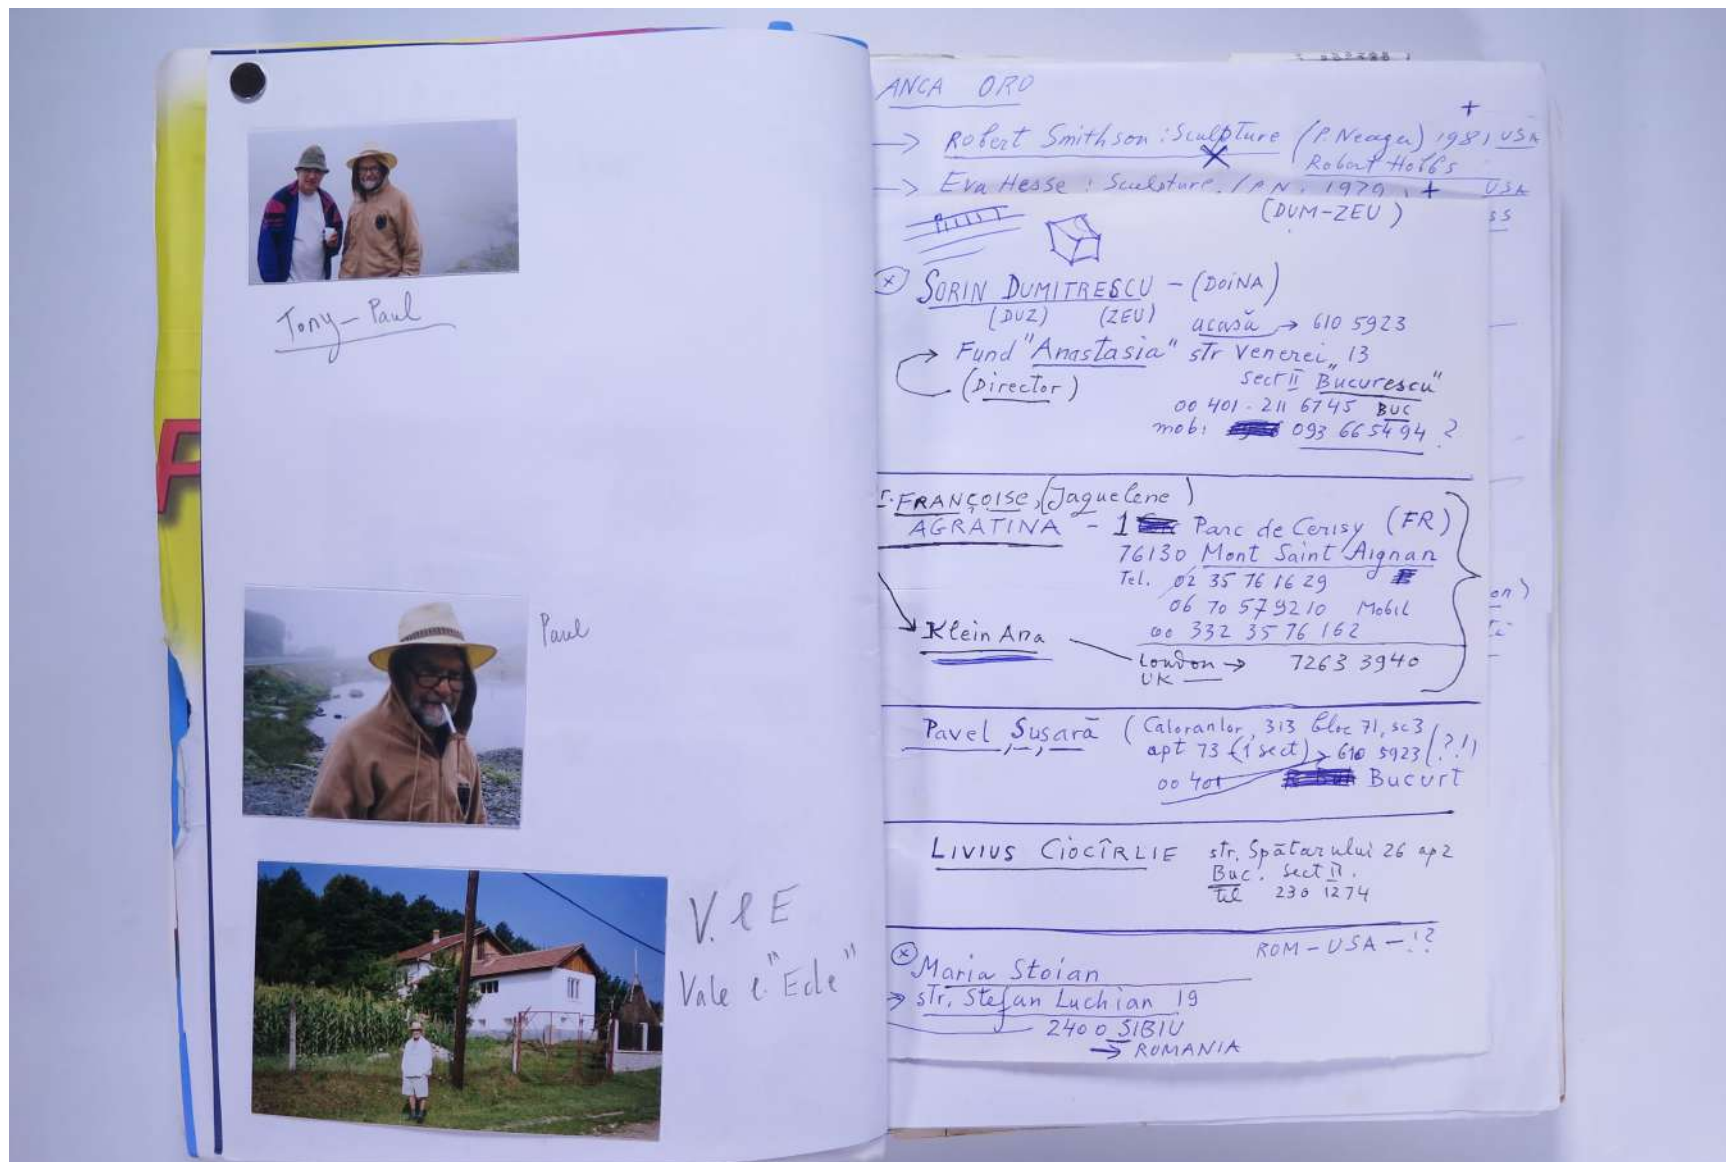 Tony – Paul
Paul
V. l E
Vale l. "Ecle"
ANCA ORO
→ Robert Smithson : Sculpture (P. Neagu) 1981 USA
Robert Hobbs
→ Eva Hesse : Sculpture. / P.N. 1979 . + USA
(DUM-ZEU)
SORIN DUMITRESCU – (DOINA)
(DUZ) (ZEU) acasă → 610 5923
Fund "Anastasia" str Venerei, 13
(Director) Sect II "Bucurescu"
00 401 - 211 6745 BUC
mob: 093 665494 ?
FRANÇOISE, (Jaquelene)
AGRATINA – 1 Parc de Cerisy (FR)
76130 Mont Saint Aignan
Tel. 02 35 76 16 29
06 70 579210 Mobil
00 332 35 76 162
Klein Ana
London → 7263 3940
UK
Pavel Șușară (Caloranlor, 313 bloc 71, sc3
apt 73 (1 sect) → 610 5923 (?!)
00 401 Bucurt
LIVIUS CIOCÎRLIE str. Spătarului 26 ap 2
Buc. Sect II.
tel 230 1274
ROM – USA – !?
Maria Stoian
→ str. Stefan Luchian 19
2400 SIBIU
→ ROMANIA